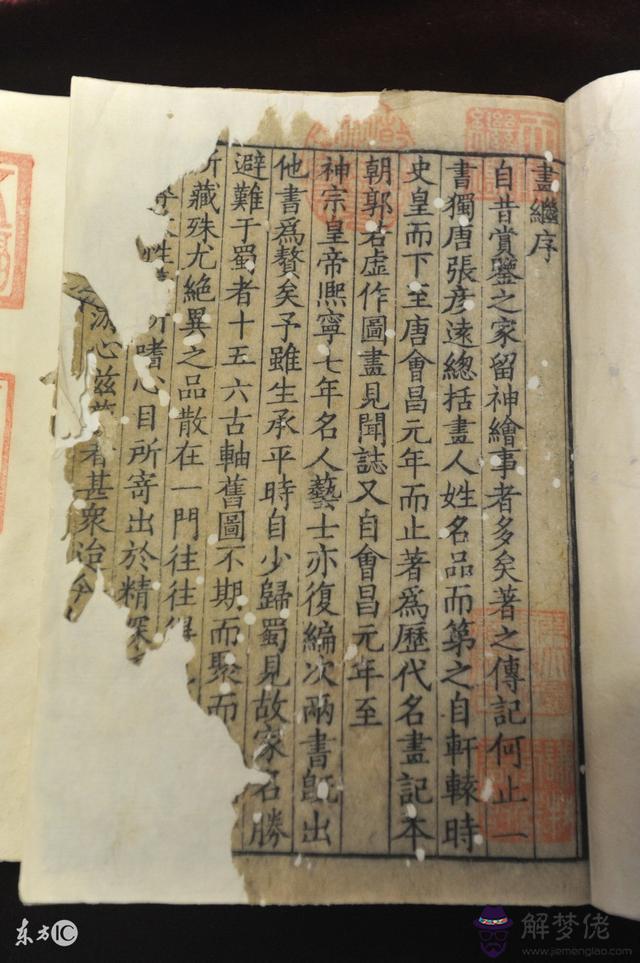 畫繼序
自昔賞鑒之家留神繪事者多矣著之傳記何止一
書獨唐張彥遠總括畫人姓名品而第之自軒轅時
史皇而下至唐會昌元年而止著爲歷代名畫記本
朝郭若虛作圖畫見聞誌又自會昌元年至
神宗皇帝熈寧七年名人藝士亦復編次兩書旣出
他書爲贅矣予雖生承平時自少歸蜀見故家名勝
避難于蜀者十五六古軸舊圖不期而聚而
所藏殊尤絶異之品散在一門往往得
性 所嗜心目所寄出於精深
游心茲 者甚衆迨今
东方IC
解梦佬
www.jiemenglao.com